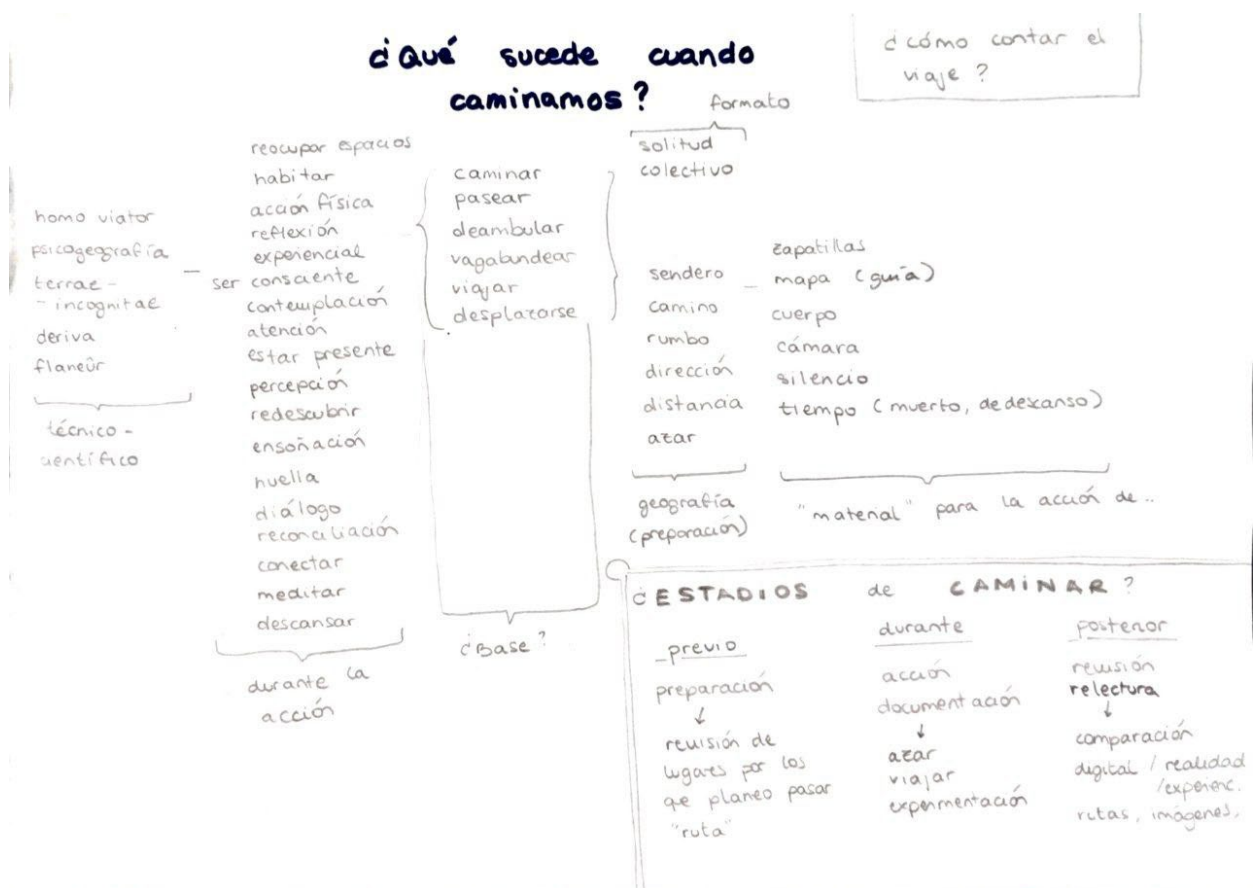 ¿Qué sucede cuando
caminamos?
¿cómo contar el
viaje?
homo viator
psicogeografía
terrae-
- incognitae
deriva
flaneûr
técnico-
científico
reocupar espacios
habitar
acción física
reflexión
experiencial
ser consciente
contemplación
atención
estar presente
percepción
redescubrir
ensoñación
huella
diálogo
reconciliación
conectar
meditar
descansar
durante la
acción
caminar
pasear
deambular
vagabundear
viajar
desplazarse
¿Base?
formato
solitud
colectivo
sendero
camino
rumbo
dirección
distancia
azar
geografía
(preparación)
zapatillas
mapa (guía)
cuerpo
cámara
silencio
tiempo (muerto, de descanso)
"material" para la acción de..
¿ESTADIOS de CAMINAR?
previo
preparación
↓
revisión de
lugares por los
que planeo pasar
"ruta"
durante
acción
documentación
↓
azar
viajar
experimentación
posterior
revisión
relectura
↓
comparación
digital / realidad
/experienc.
rutas, imágenes,